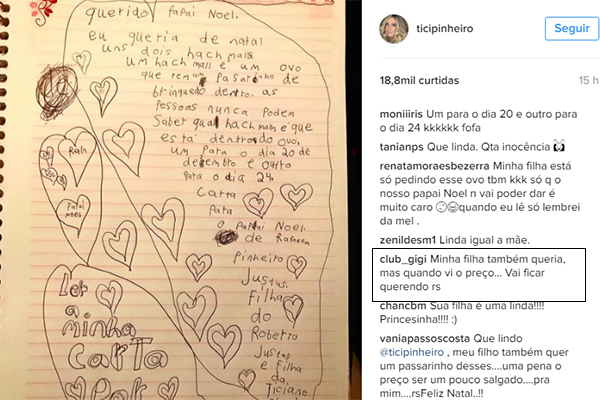 querido PaPai Noel.
eu queria de natal
uns dois hachmalls
um hachmall é um ovo
que tem um Pasarinho de
brinquedo dentro, as
pessoas nunca Podem
Saber qual hachmalls é que
está dentro do ovo,
um Para o dia 20 de
dezembro e outro
Para o dia 24.
Carta
Para
o Papai Noel
de Rafaella
Pinheiro
Justus.
Filha
do
Roberto
Justus
e Filha
da
Ticiane
Rafa
Papai
noel
Ler
a
minha
CARTA
Por
ticipinheiro
Seguir
18,8mil curtidas
15 h
moniiiris Um para o dia 20 e outro para
o dia 24 kkkkkk fofa
tanianps Que linda. Qta inocência
renatamoraesbezerra Minha filha está
só pedindo esse ovo tbm kkk só q o
nosso papai Noel n vai poder dar é
muito caro 😉😂quando eu lê só lembrei
da mel .
zenildesm1 Linda igual a mãe.
club_gigi Minha filha também queria,
mas quando vi o preço... Vai ficar
querendo rs
chancbm Sua filha é uma linda!!!!
Princesinha!!!! :)
vaniapassoscosta Que lindo
@ticipinheiro , meu filho também quer
um passarinho desses....uma pena o
preço ser um pouco salgado....pra
mim....rsFeliz Natal..!!